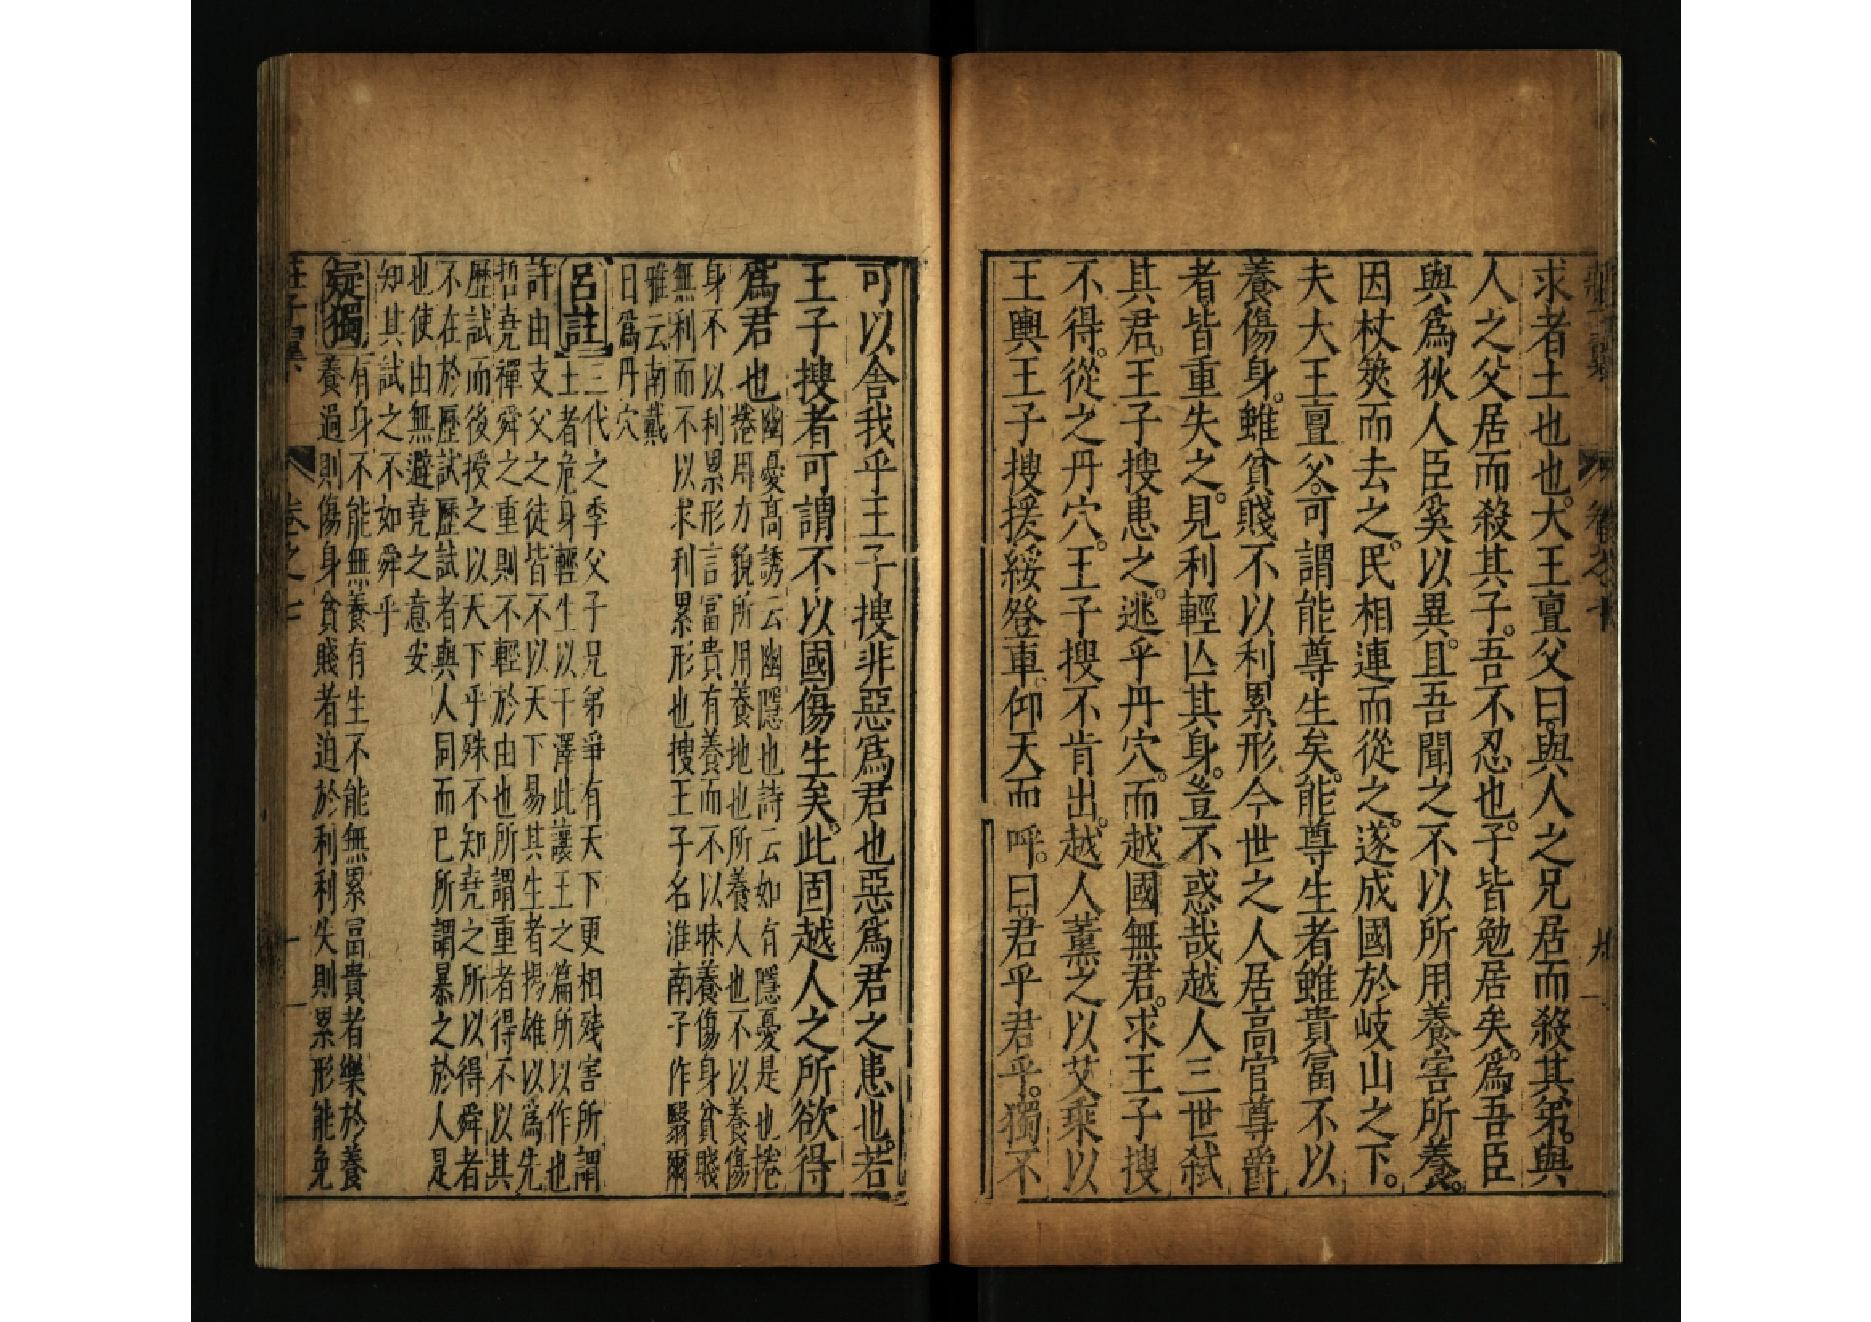 求者土也也。大王亶父曰。與人之兄居而殺其弟。與
人之父居而殺其子。吾不忍也。子皆勉居矣。爲吾臣
與爲狄人臣奚以異。且吾聞之不以所用養害所養。
因杖筴而去之。民相連而從之。遂成國於岐山之下。
夫大王亶父。可謂能尊生矣。能尊生者雖貴富不以
養傷身。雖貧賤不以利累形今世之人居高官尊爵
者皆重失之。見利輕亾其身。豈不惑哉越人三世弒
其君。王子搜患之。逃乎丹穴。而越國無君。求王子搜
不得。從之丹穴。王子搜不肯出。越人薰之以艾乘以
王輿王子搜援綏登車。仰天而呼。曰君乎君乎。獨不
可以舍我乎王子搜非惡爲君也惡爲君之患也。若
王子搜者可謂不以國傷生矣。此固越人之所欲得
爲君也
幽憂高誘云幽隱也詩云如有隱憂是也捲
捲用力貌所用養地也所養人也不以養傷
身不以利累形言富貴有養而不以昧養傷身貧賤
無利而不以求利累形也搜王子名淮南子作翳爾
雅云南戴
日爲丹穴
呂註
三代之季父子兄弟爭有天下更相殘害所謂
土者危身輕生以干澤此讓王之篇所以作也
許由支父之徒皆不以天下易其生者揚雄以爲先
哲堯禪舜之重則不輕於由也所謂重者得不以其
歷試而後授之以天下乎殊不知堯之所以得舜者
不在於歷試歷試者與人同而已所謂暴之於人是
也使由無避堯之意安
知其試之不如舜乎
疑獨
有身不能無養有生不能無累富貴者樂於養
養過則傷身貧賤者迫於利利失則累形能免
莊子翼
卷之七